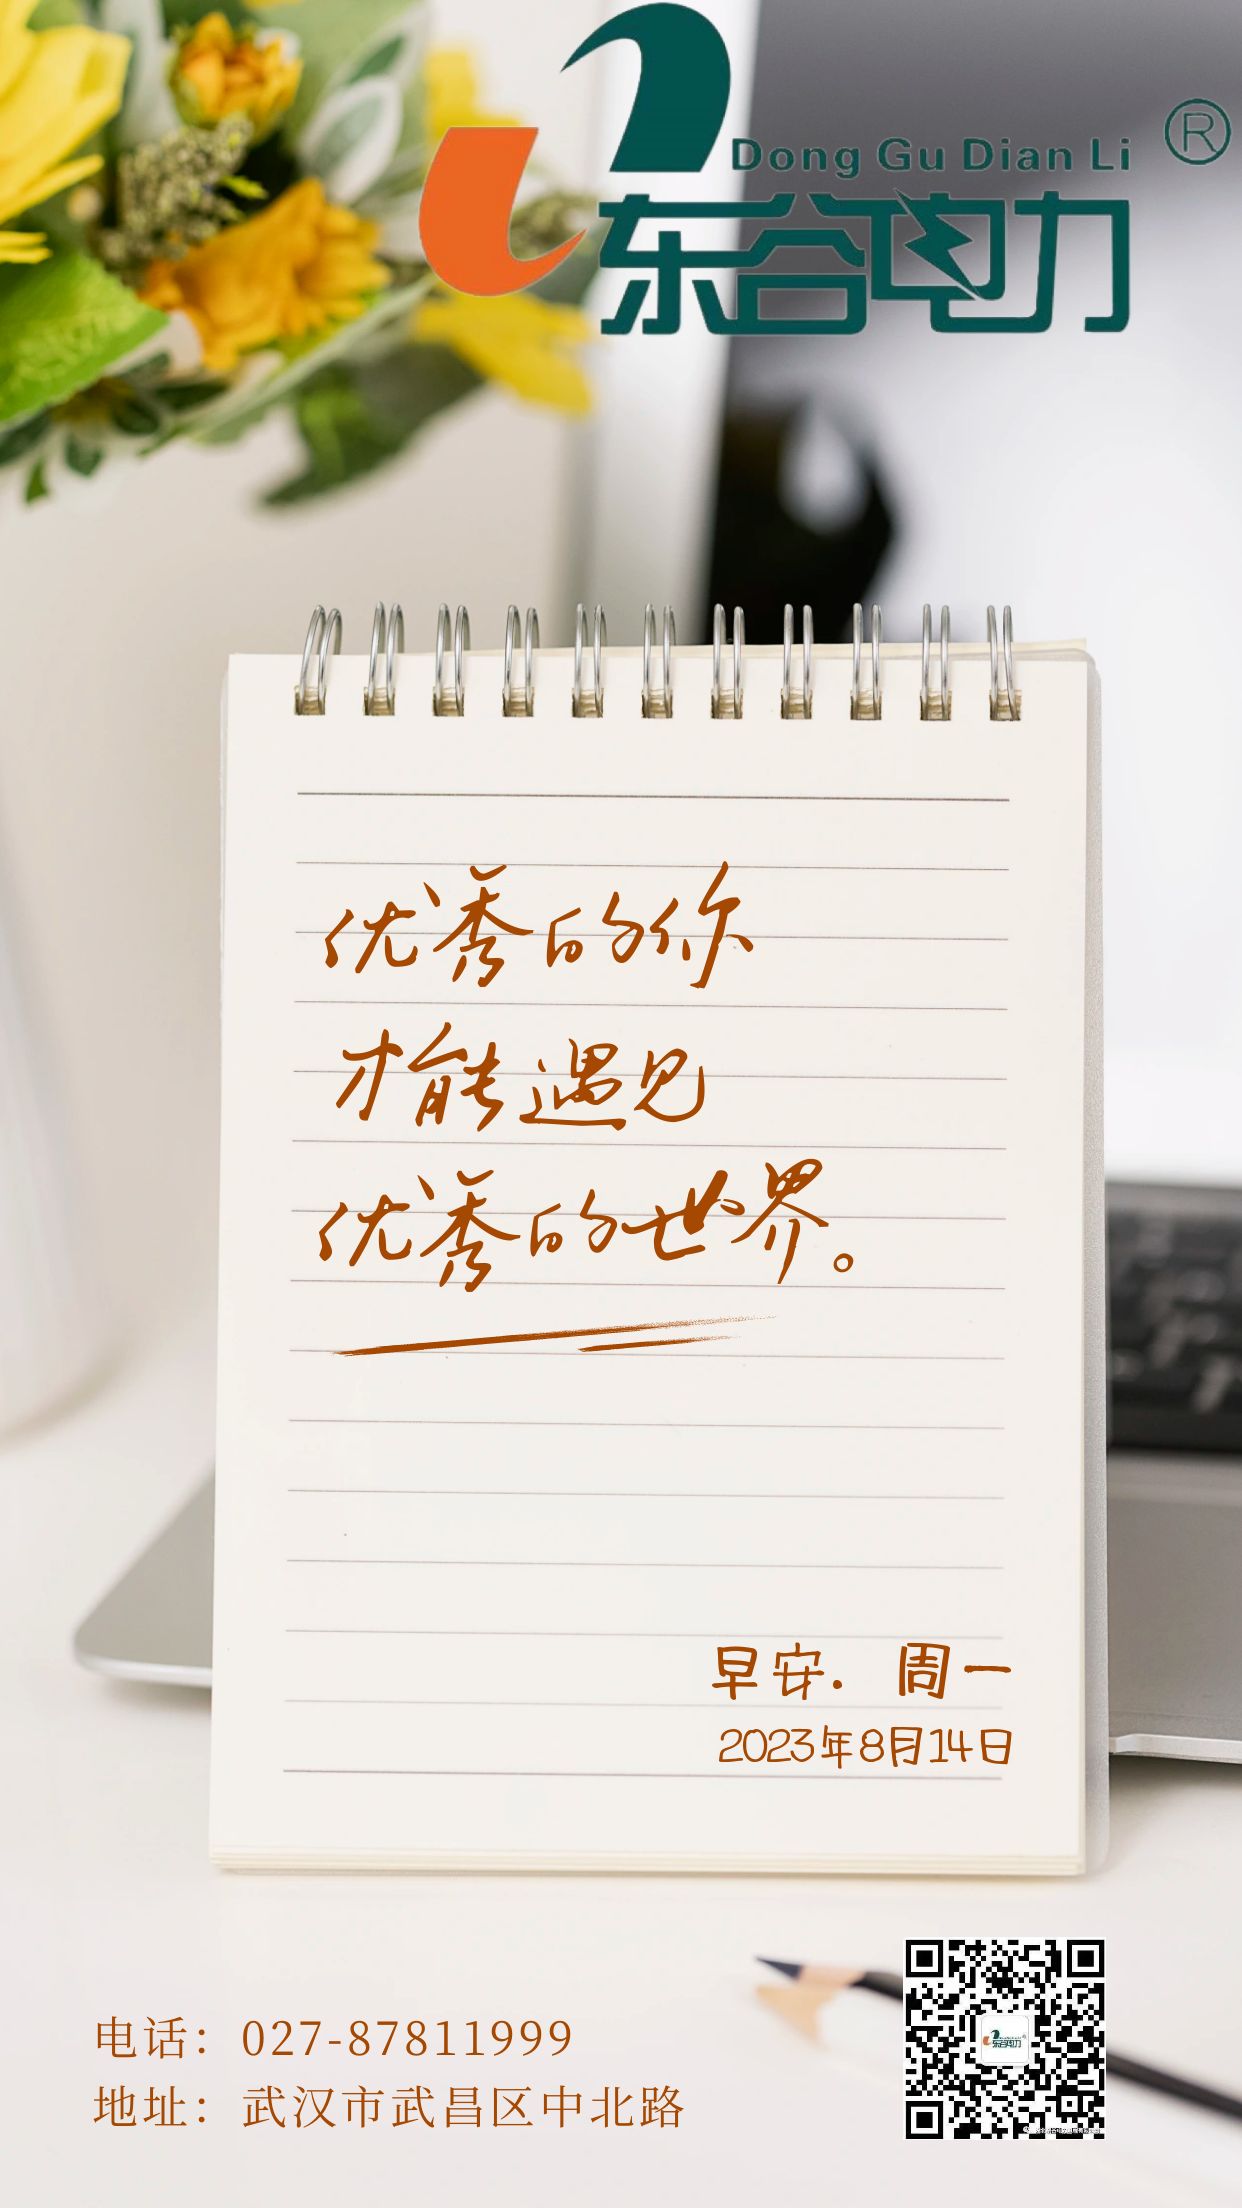 Dong Gu Dian Li ®
东谷电力
优秀的你
才能遇见
优秀的世界。
早安. 周一
2023年8月14日
电话：027-87811999
地址：武汉市武昌区中北路
东谷电力